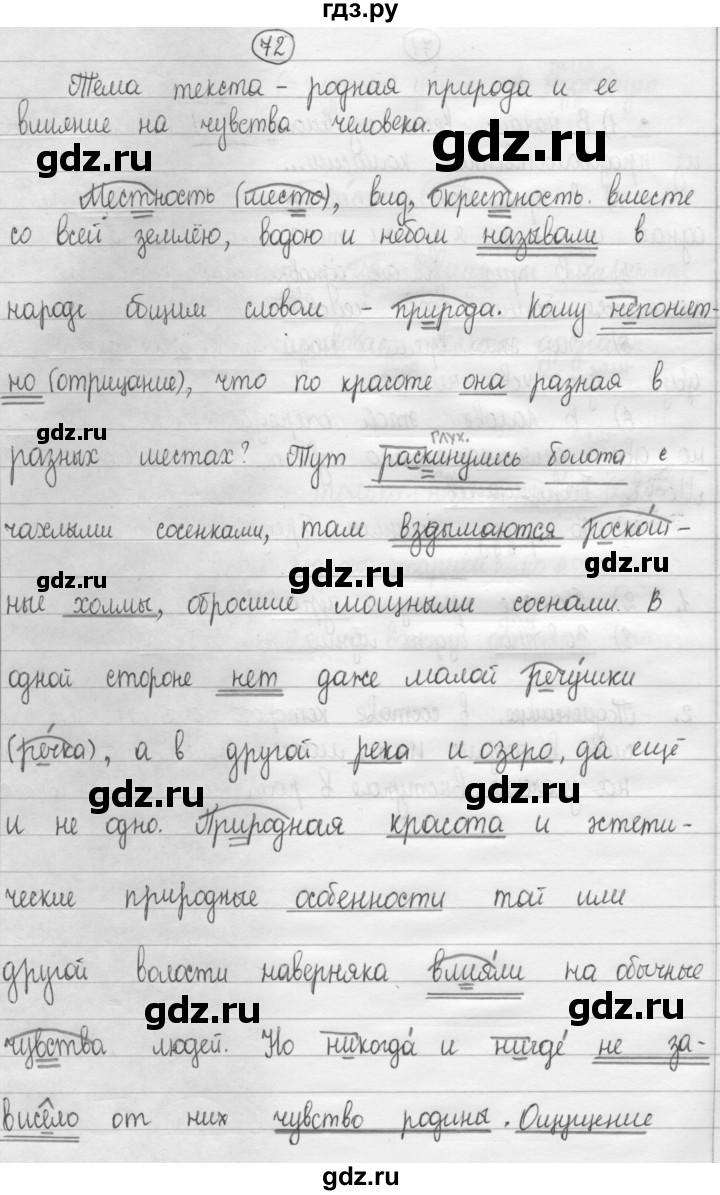 гдз.ру
72
Тема текста – родная природа и ее
влияние на чувства человека.
gdz.ru gdz.ru
Местность (место), вид, окрестность. вместе
со всей землёю, водою и небом называли в
народе общим словом – природа. Кому непонят-
но (отрицание), что по красоте она разная в
gdz.ru gdz.ru
глух.
разных местах? Тут раскинулись болота с
чахлыми сосенками, там вздымаются роскош-
gdz.ru gdz.ru
ные холмы, обросшие мощными соснами. В
одной стороне нет даже малой речушки
(речка), а в другой река и озеро, да ещё
gdz.ru gdz.ru
и не одно. Природная красота и эстети-
ческие природные особенности той или
другой волости наверняка влияли на обычные
gdz.ru gdz.ru
чувства людей. Но никогда и нигде не за-
висело от них чувство родины. Ощущение
gdz.ru